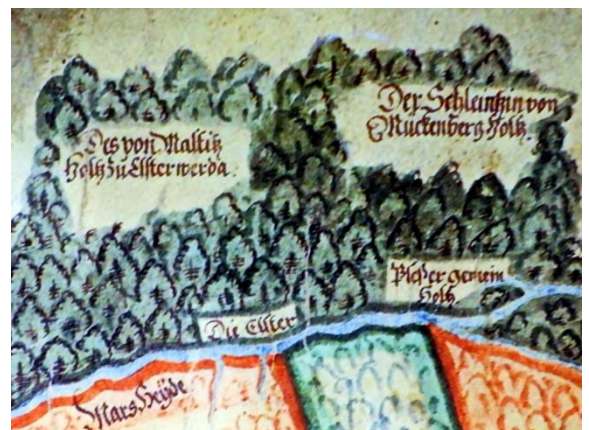 Des von Maltitz
Holtz zu Elsterwerda.
Der Schleintzin von
Muckenberg Holtz.
Pleßer gemein
Holtz
Die Elster
Mars Heyde